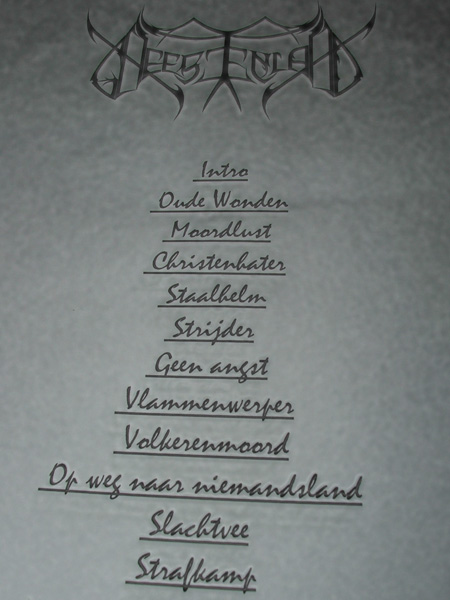 Intro
Oude Wonden
Moordlust
Christenhater
Staalhelm
Strijder
Geen angst
Vlammenwerper
Volkerenmoord
Op weg naar niemandsland
Slachtvee
Strafkamp